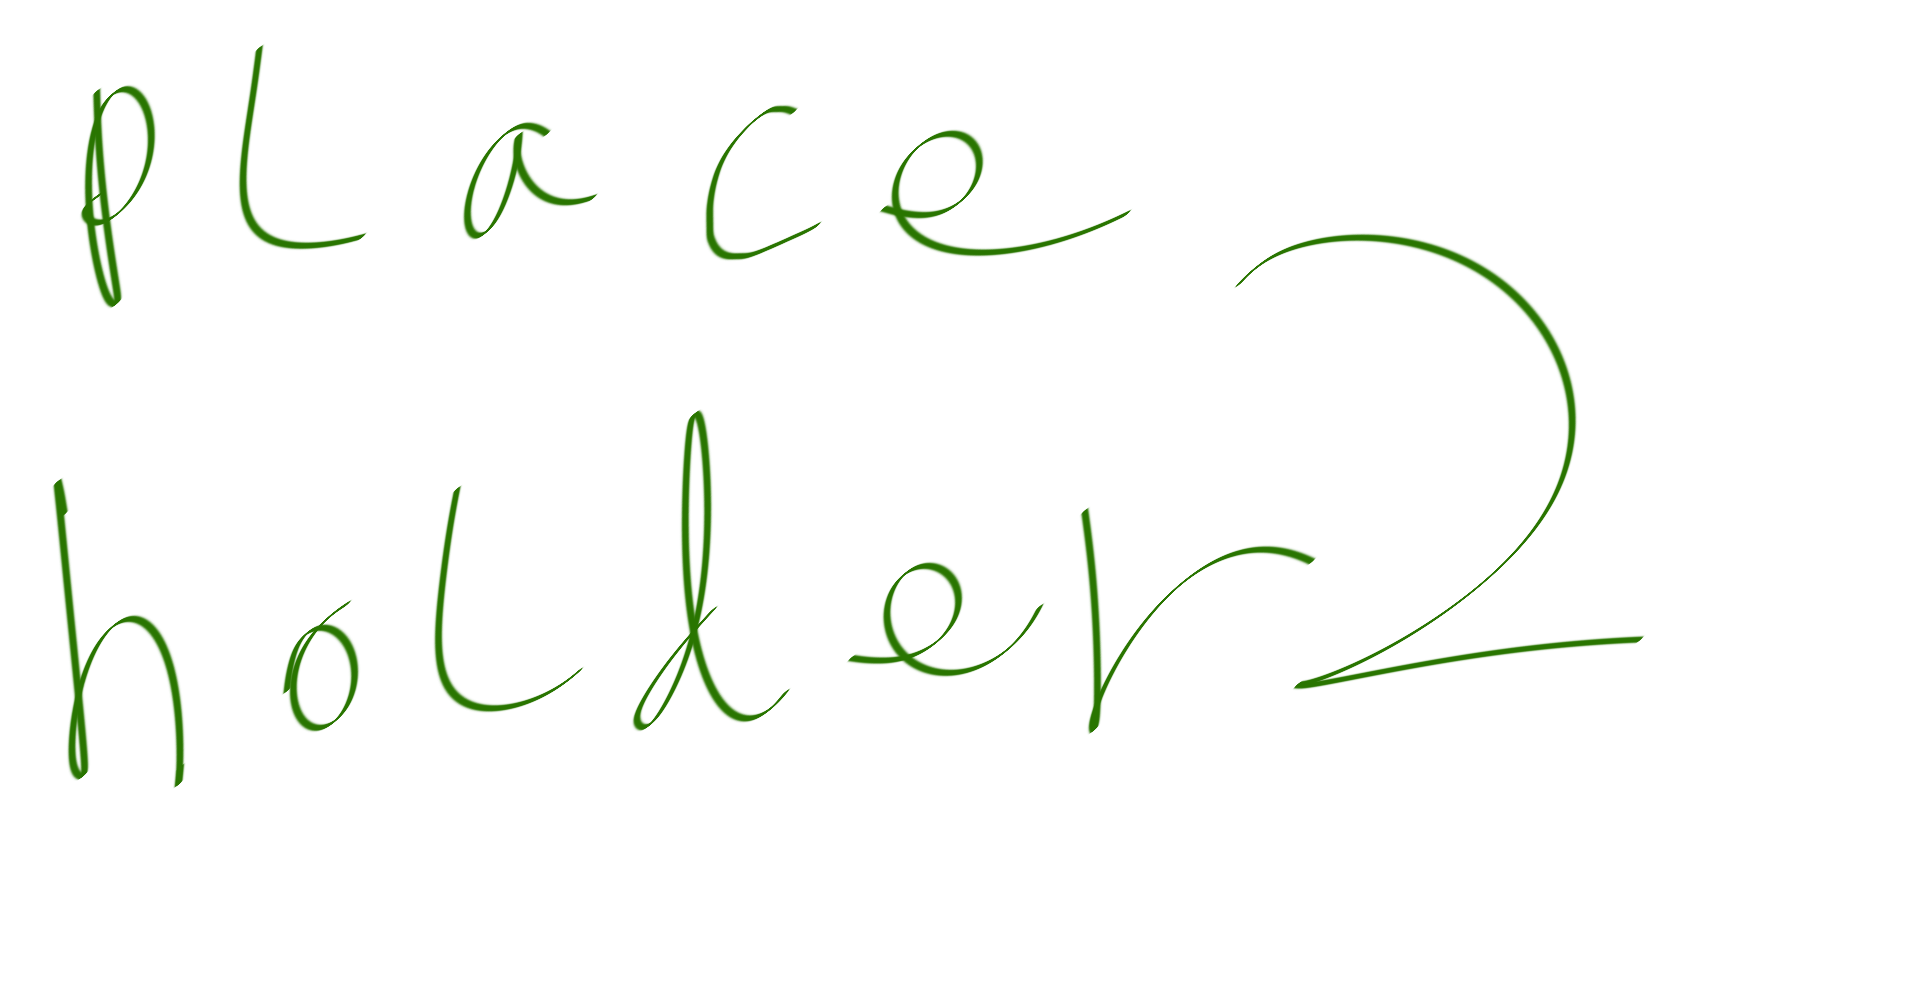 place
holder 2